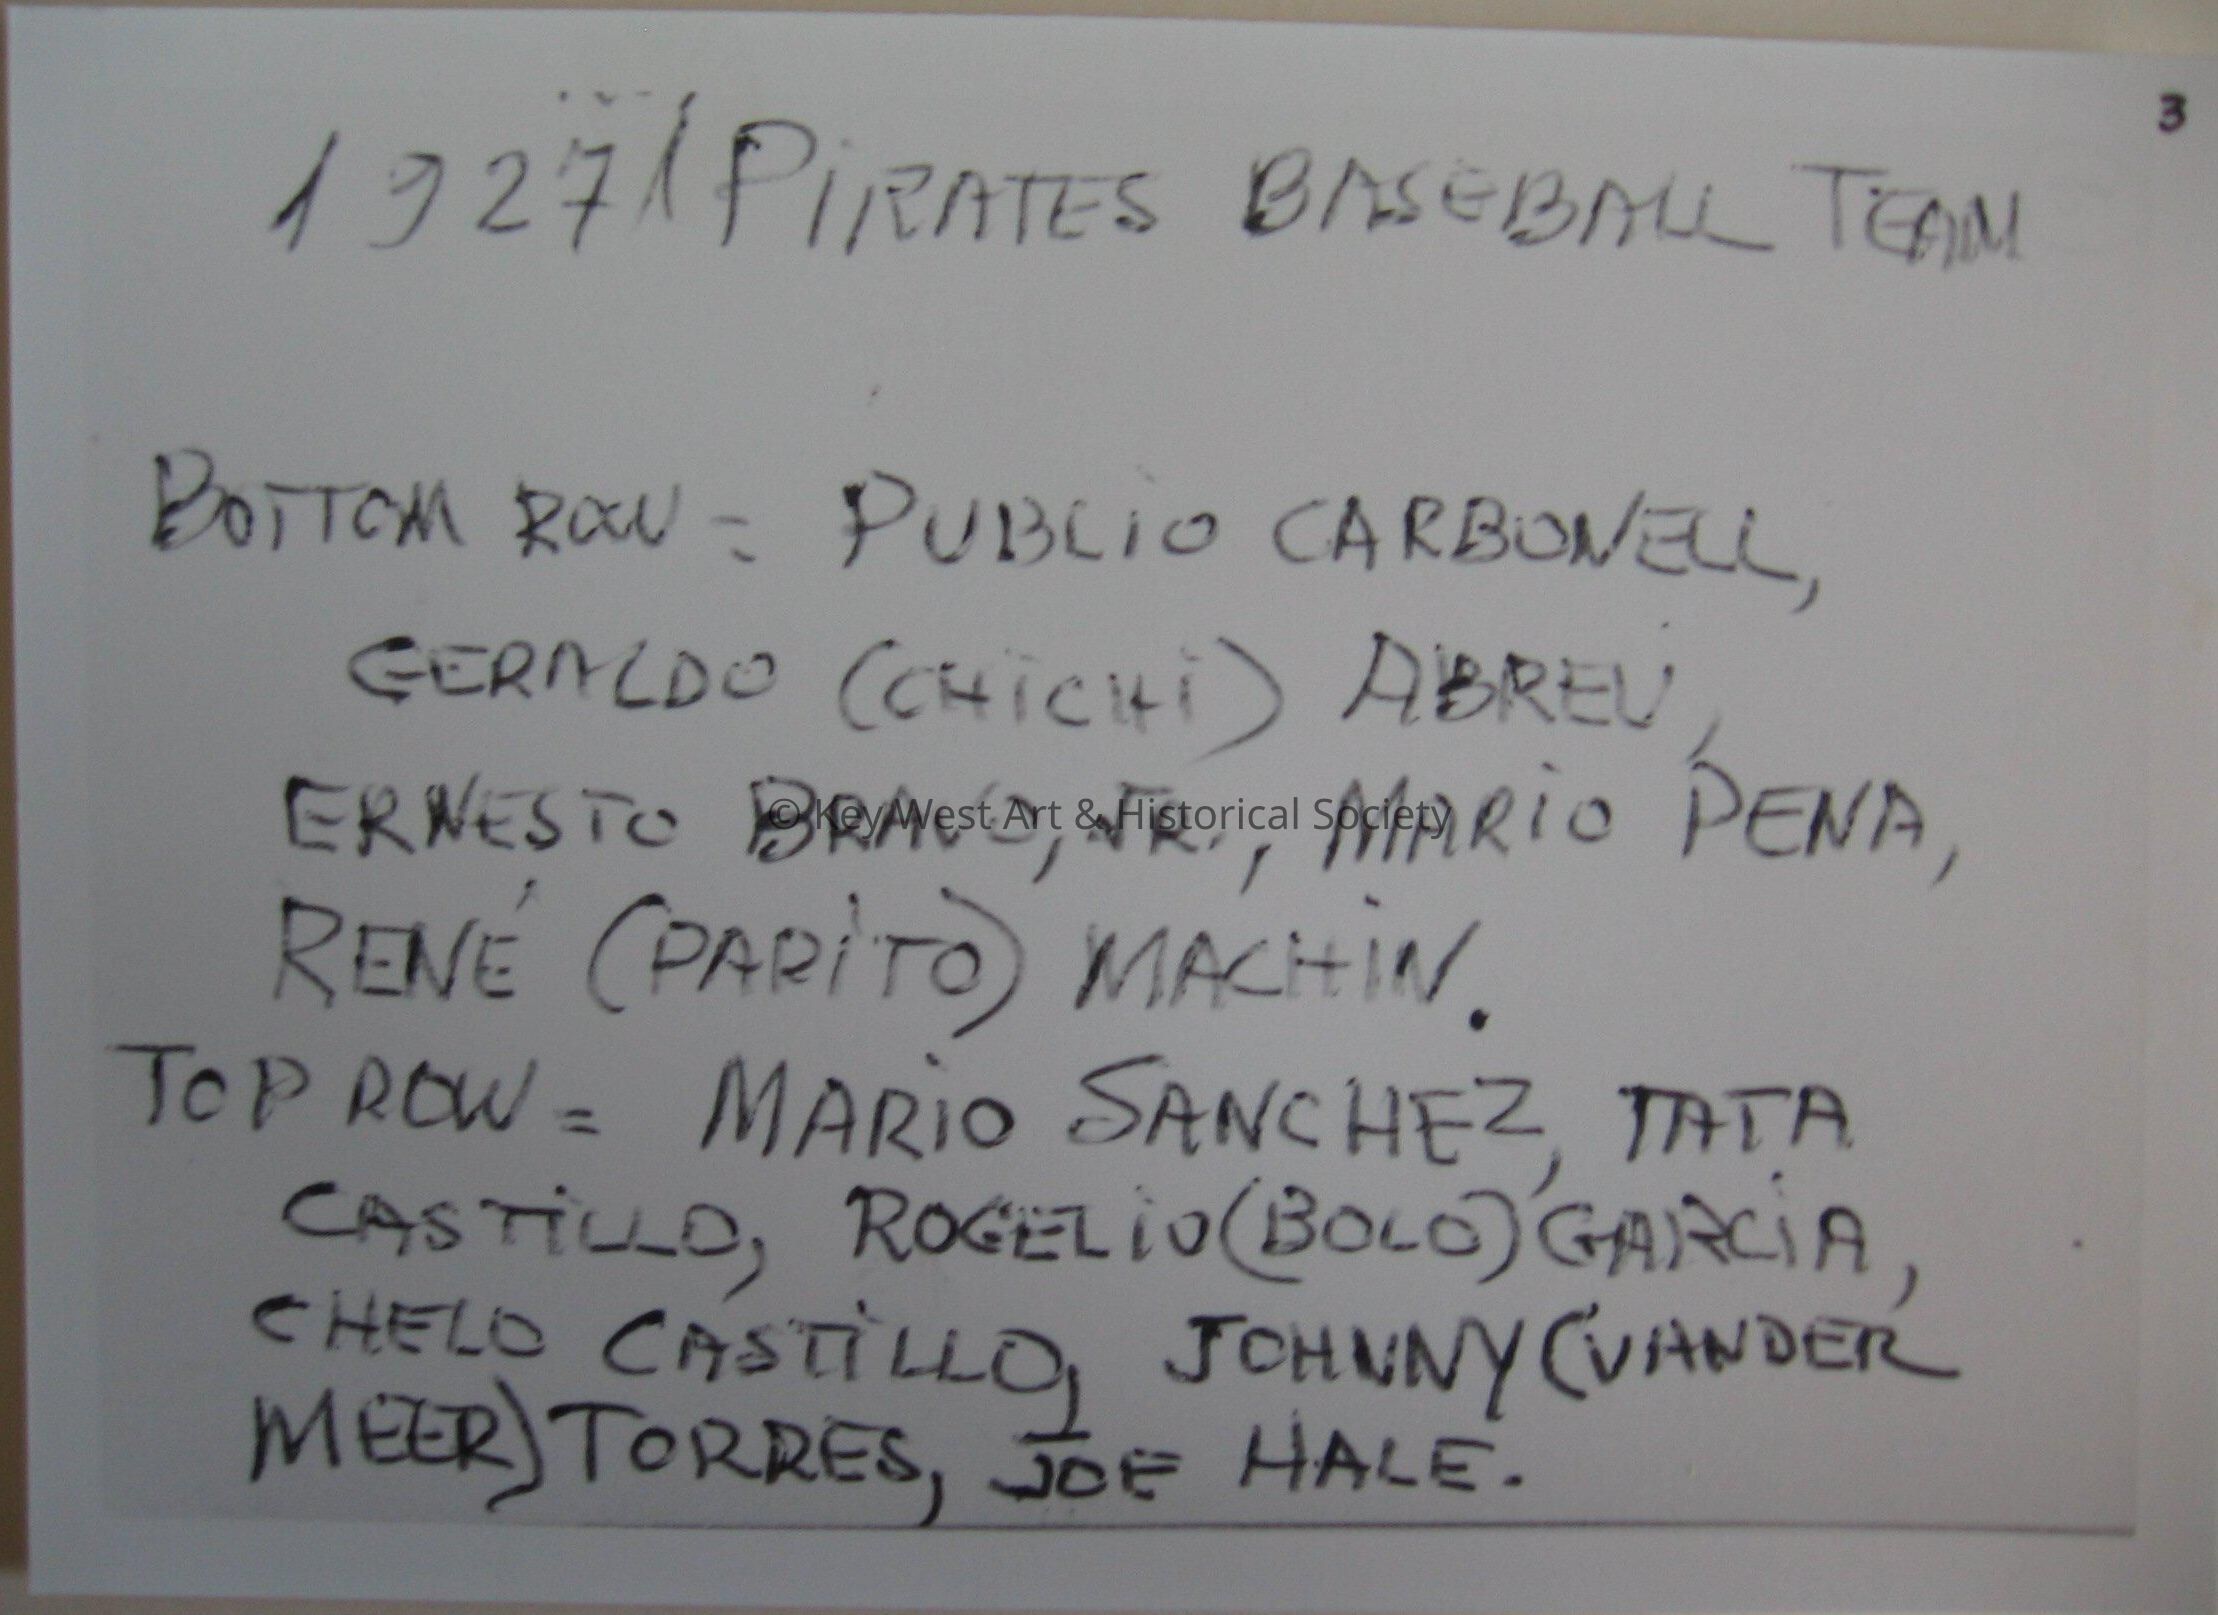 3
1927 / PIRATES BASEBALL TEAM
BOTTOM ROW = PUBLIO CARBONELL,
GERALDO (CHICHI) ABREU,
ERNESTO BRAVO, JR., MARIO PENA,
© Key West Art & Historical Society
RENÉ (PARITO) MACHIN.
TOP ROW = MARIO SANCHEZ, TATA
CASTILLO, ROGELIO (BOLO) GARCIA,
CHELO CASTILLO, JOHNNY (VANDER
MEER) TORRES, JOE HALE.